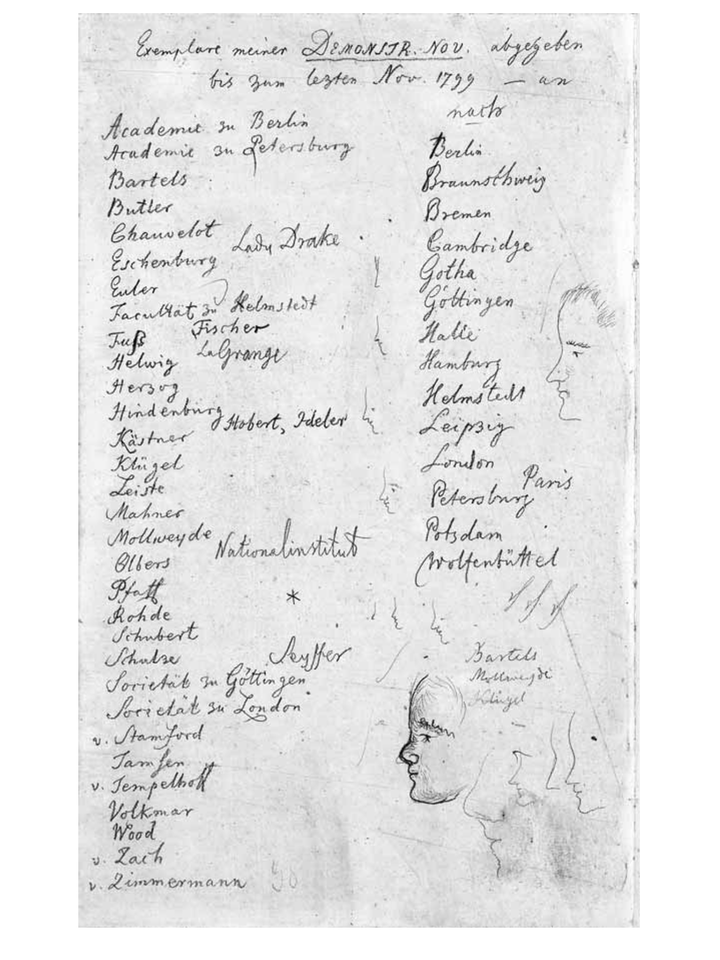 Exemplare meiner DEMONSTR. NOV. abgegeben
bis zum lezten Nov. 1799 — an
Academie zu Berlin
Academie zu Petersburg
Bartels
Butler
Chauvelot
Lady Drake
Eschenburg
Euler
Facultät zu Helmstedt
Fuß
Fischer
Helwig
LaGrange
Herzog
Hindenburg
Hobert, Ideler
Kästner
Klügel
Leiste
Mahner
Mollweyde
Nationalinstitut
Olbers
Pfaff
*
Rohde
Schubert
Schulze
Seyffer
Societät zu Göttingen
Societät zu London
v. Stamford
Tamsen
v. Tempelhoff
Volkmar
Wood
v. Zach
v. Zimmermann
nach
Berlin
Braunschweig
Bremen
Cambridge
Gotha
Göttingen
Halle
Hamburg
Helmstedt
Leipzig
London
Paris
Petersburg
Potsdam
Wolfenbüttel
Bartels
Mollweyde
Klügel